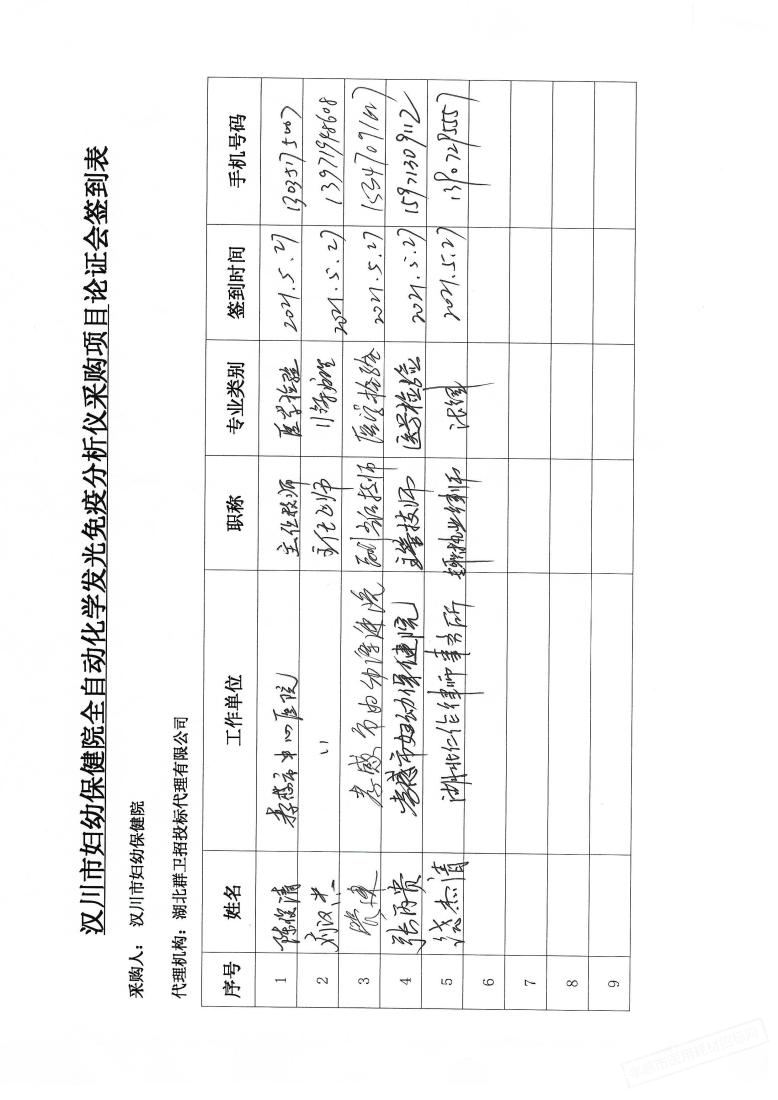 汉川市妇幼保健院全自动化学发光免疫分析仪采购项目论证会签到表
采购人： 汉川市妇幼保健院
代理机构：湖北群卫招投标代理有限公司
序号 姓名 工作单位 职称 专业类别 签到时间 手机号码
1 陈俊清 孝感市中心医院 主任技师 医学检验 2021.5.27
2 刘汉 〃 主任 2021.5.27 13971948608
3 孝感市妇幼保健院 副主任技师 医学检验 2021.5.27
4 孝感市妇幼保健院 主管技师 医学检验 2021.5.27 15971309112
5 湖北仁作律师事务所 执业律师 法律 2021.5.27
6
7
8
9